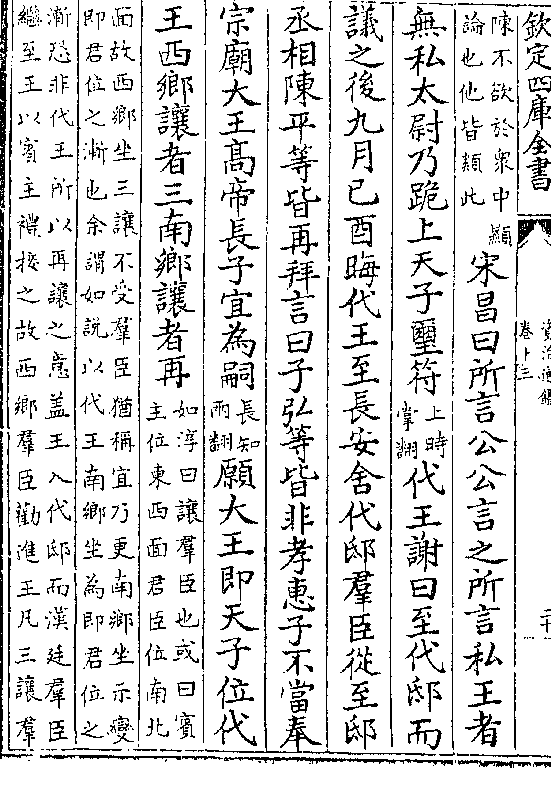 欽定四庫全書
資治通鑑
卷十三
陳不欲於衆中顯
論也他皆類此
宋昌曰所言公公言之所言私王者
無私太尉乃跪上天子璽符
上時
掌翻
代王謝曰至代邸而
議之後九月己酉晦代王至長安舍代邸羣臣從至邸
丞相陳平等皆再拜言曰子弘等皆非孝惠子不當奉
宗廟大王高帝長子宜為嗣
長知
兩翻
願大王即天子位代
王西鄉讓者三南鄉讓者再
如淳曰讓羣臣也或曰賓
主位東西面君臣位南北
面故西鄉坐三讓不受羣臣猶稱宜乃更南鄉坐示變
即君位之漸也余謂如說以代王南鄉坐為即君位之
漸恐非代王所以再讓之意蓋王入代邸而漢廷羣臣
繼至王以賓主禮接之故西鄉羣臣勸進王凡三讓羣